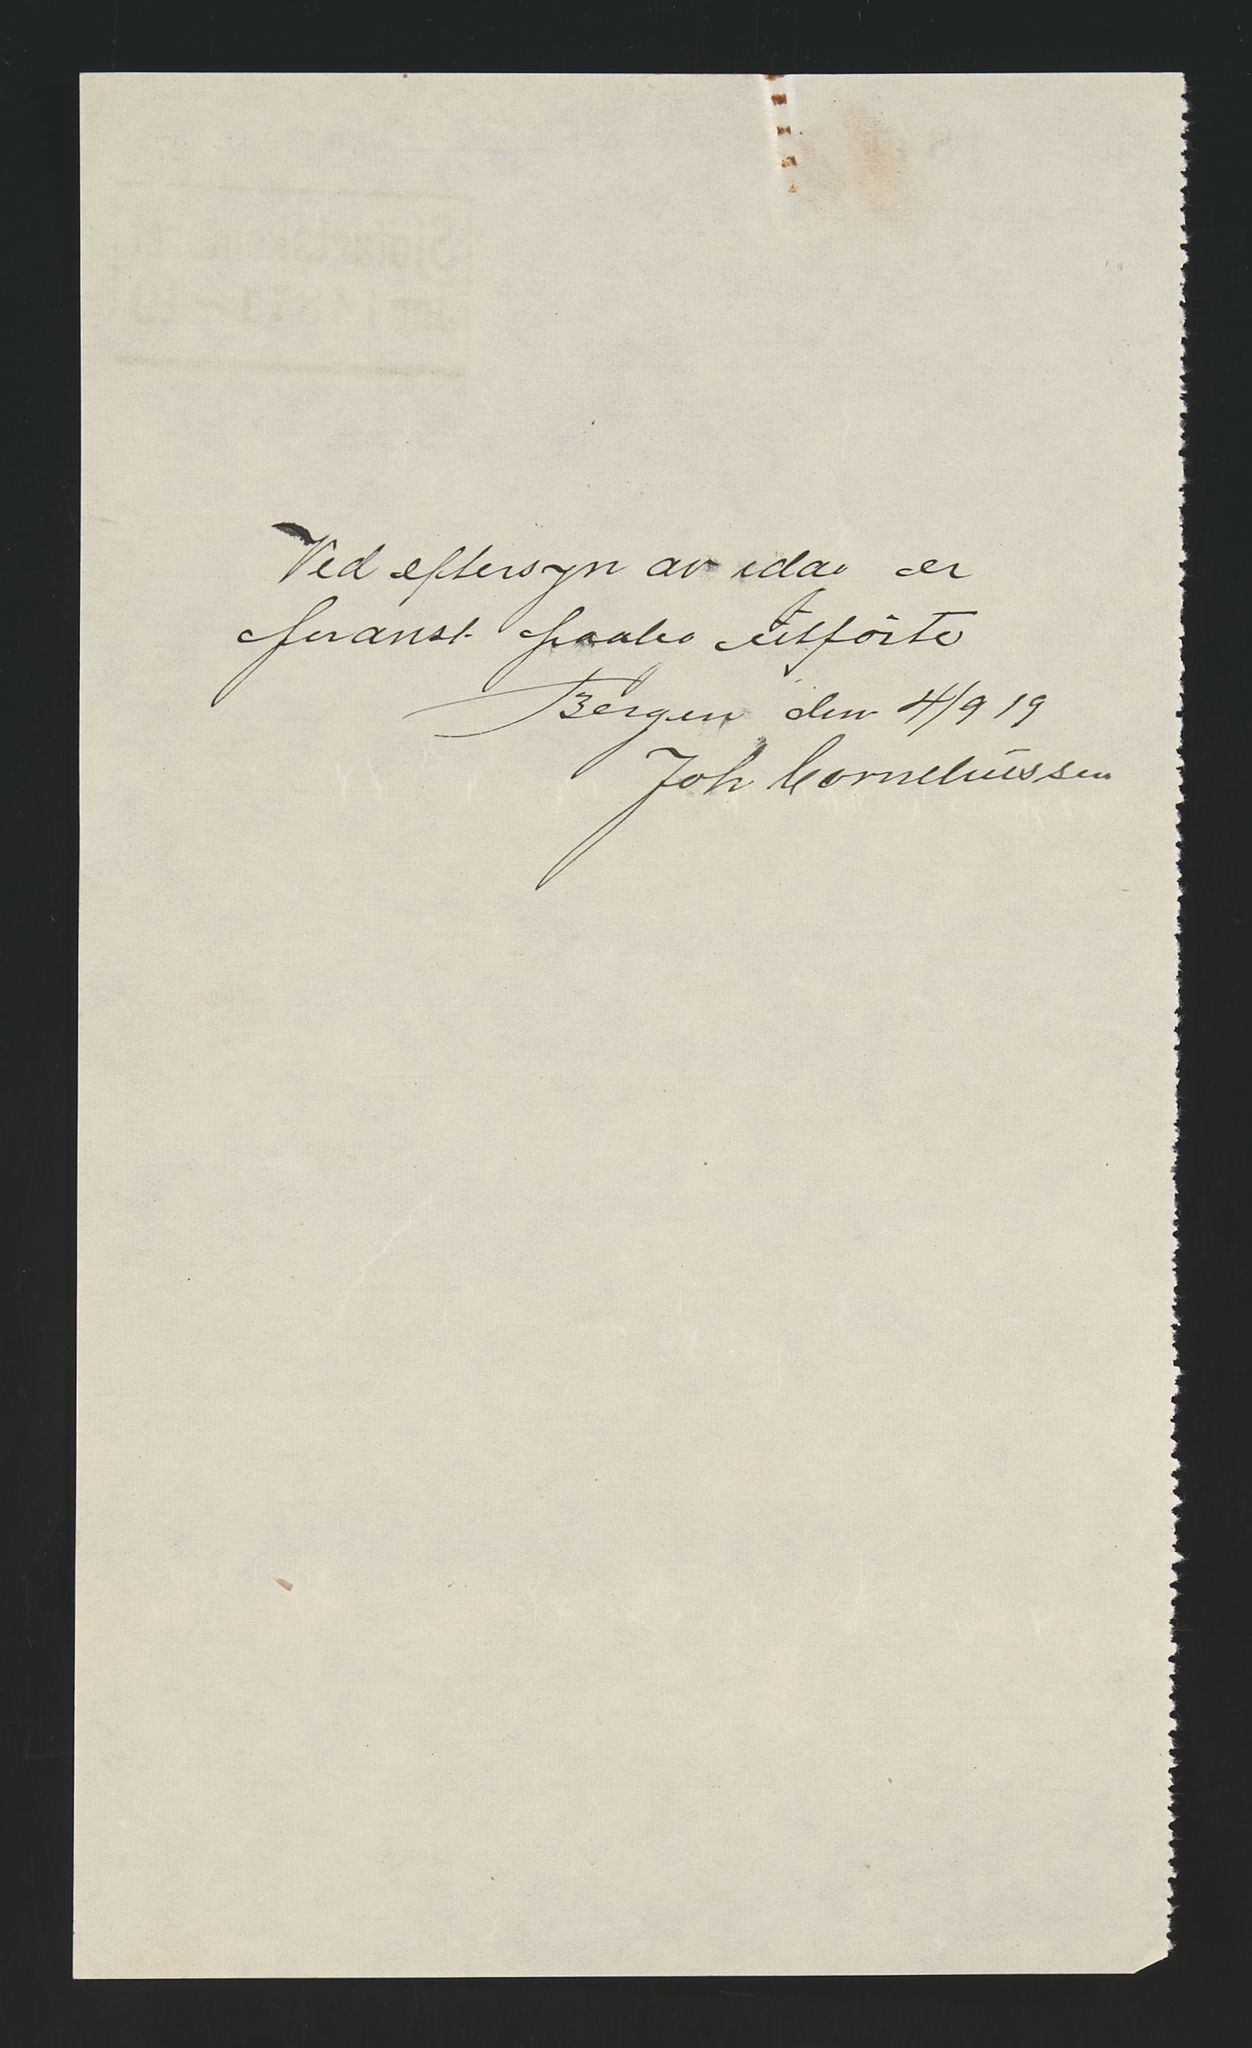 Ved eftersyn av idag er
foranst. paalæg utförte
Bergen den 4/9 19
Joh Corneliussen